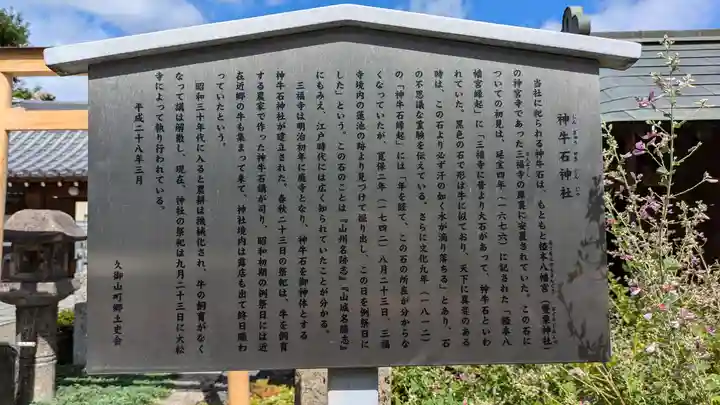 神牛石神社
しんぎゅうせきじんじゃ
当社に祀られる神牛石は、もともと椏本八幡宮(雙栗神社)
の神宮寺であった三福寺の庫裏に安置されていた。この石に
ついての初見は、延宝四年(一六七六)に記された「椏本八
幡宮縁起」に「三福寺に昔より大石があって、神牛石といわ
れていた。黒色の石で形は牛に似ており、天下に異変のある
時は、この石より必ず汗の如く水が滴り落ちる」とあり、石
の不思議な霊験を伝えている。さらに文化九年(一八一二)
の「神牛石縁起」には「年を経て、この石の所在が分からな
くなっていたが、寛保二年(一七四二)八月二十三日、三福
寺境内の蓮池の跡より見つけて掘り出し、この日を例祭日に
した」という。この石のことは『山州名跡志』『山城名勝志』
にもみえ、江戸時代には広く知られていたことが分かる。
三福寺は明治初年に廃寺となり、神牛石を御神体とする
神牛石神社が建立された。春秋二十三日の祭祀は、牛を飼育
する農家で作った神牛石講が司り、昭和初期の例祭日には近
在近郷の牛も集まって来て、神社境内は露店も出て終日賑わ
っていたという。
昭和三十年代に入ると農耕は機械化され、牛の飼育がなく
なって講は解散し、現在、神社の祭祀は九月二十三日に大松
寺によって執り行われている。
平成二十八年三月
久御山町郷土史会